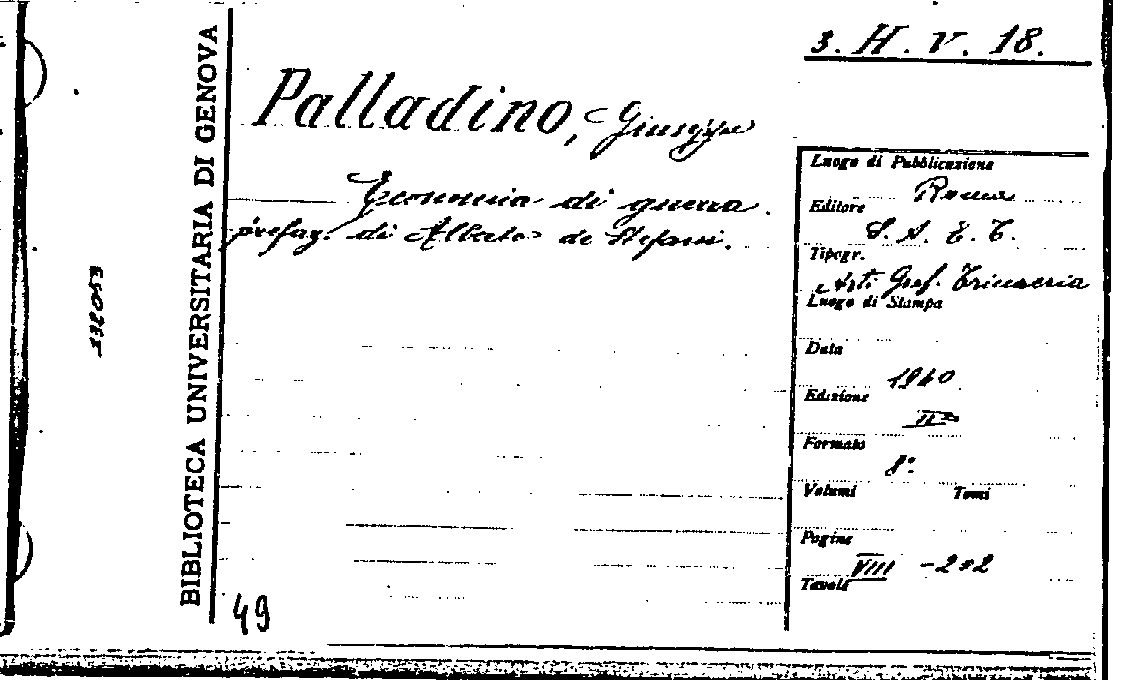 3. H. V. 18.
BIBLIOTECA UNIVERSITARIA DI GENOVA
Palladino, Giuseppe
Economia di guerra.
prefaz. di Alberto de Stefani.
Luogo di Pubblicazione
Roma
Editore
S. A. E. T.
Tipogr.
Arti Graf. Trinacria
Luogo di Stampa
Data
1940
Edizione
IIa
Formato
8°.
Volumi Tomi
Pagine
VIII - 202
Tavole
49